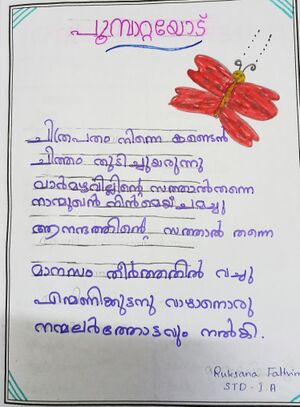 പൂമ്പാറ്റയോട്
ചിത്രപതംഗ നിന്നെ കണ്ടെൻ
ചിത്തം തുടിച്ചുയരുന്നു
വാർമഴവില്ലിന്റെ സത്താൽതന്നെ
നാന്മുഖൻ നിൻമെയ് ചമച്ചു
ആനന്ദത്തിന്റെ സത്താൽ തന്നെ
മാനസം തീർത്തതിൽ വച്ചു
എന്മണിക്കുടനു വാഴാനൊരു
നന്മലർത്തോട്ടവും നൽകി.
Ruksana Fathim
STD - I A